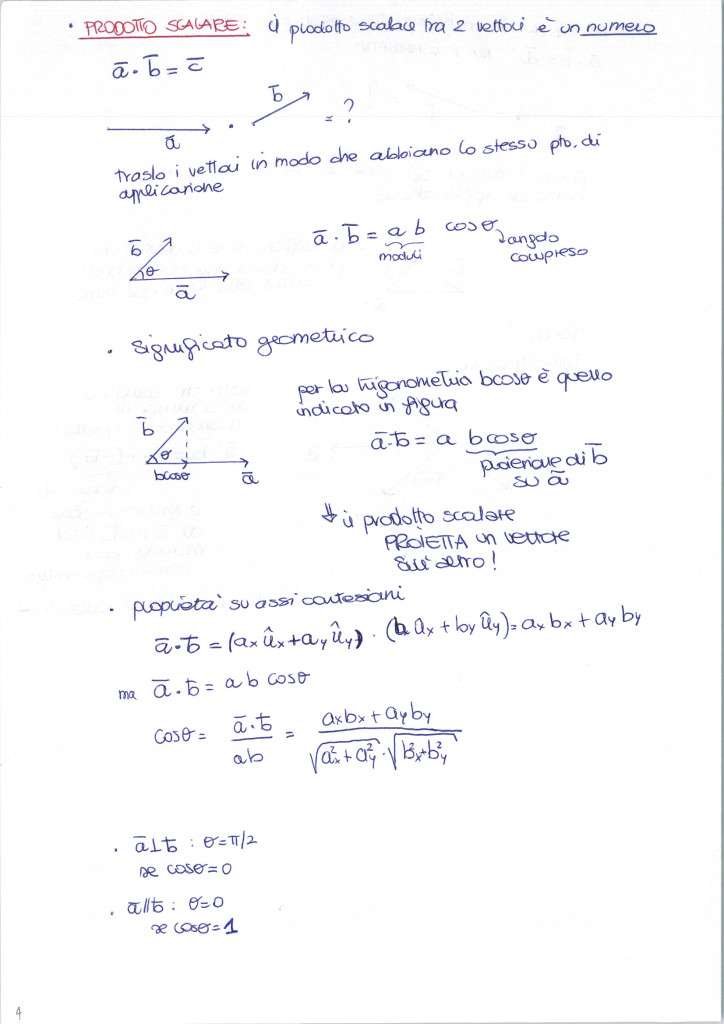 • PRODOTTO SCALARE: il prodotto scalare tra 2 vettori è un numero
a̅ · b̅ = c̅
b̅
a̅ · = ?
traslo i vettori in modo che abbiano lo stesso pto. di
applicazione
b̅
θ
a̅
a̅ · b̅ = a b cosθ
moduli
angolo
compreso
• significato geometrico
per la trigonometria bcosθ è quello
indicato in figura
b̅
θ
bcosθ
a̅
a̅·b̅ = a bcosθ
proiezione di b̅
su a̅
⇓ il prodotto scalare
PROIETTA un vettore
sull'altro!
• proprietà su assi cartesiani
a̅·b̅ = (aₓ ûₓ + a_y û_y) · (b ûₓ + b_y û_y) = aₓ bₓ + a_y b_y
ma a̅ · b̅ = a b cosθ
cosθ = a̅·b̅ / ab = aₓbₓ + a_y b_y / √(aₓ² + a_y²) · √(bₓ² + b_y²)
• a̅ ⊥ b̅ : θ = π/2
se cosθ = 0
• a̅ // b̅ : θ = 0
se cosθ = 1
4